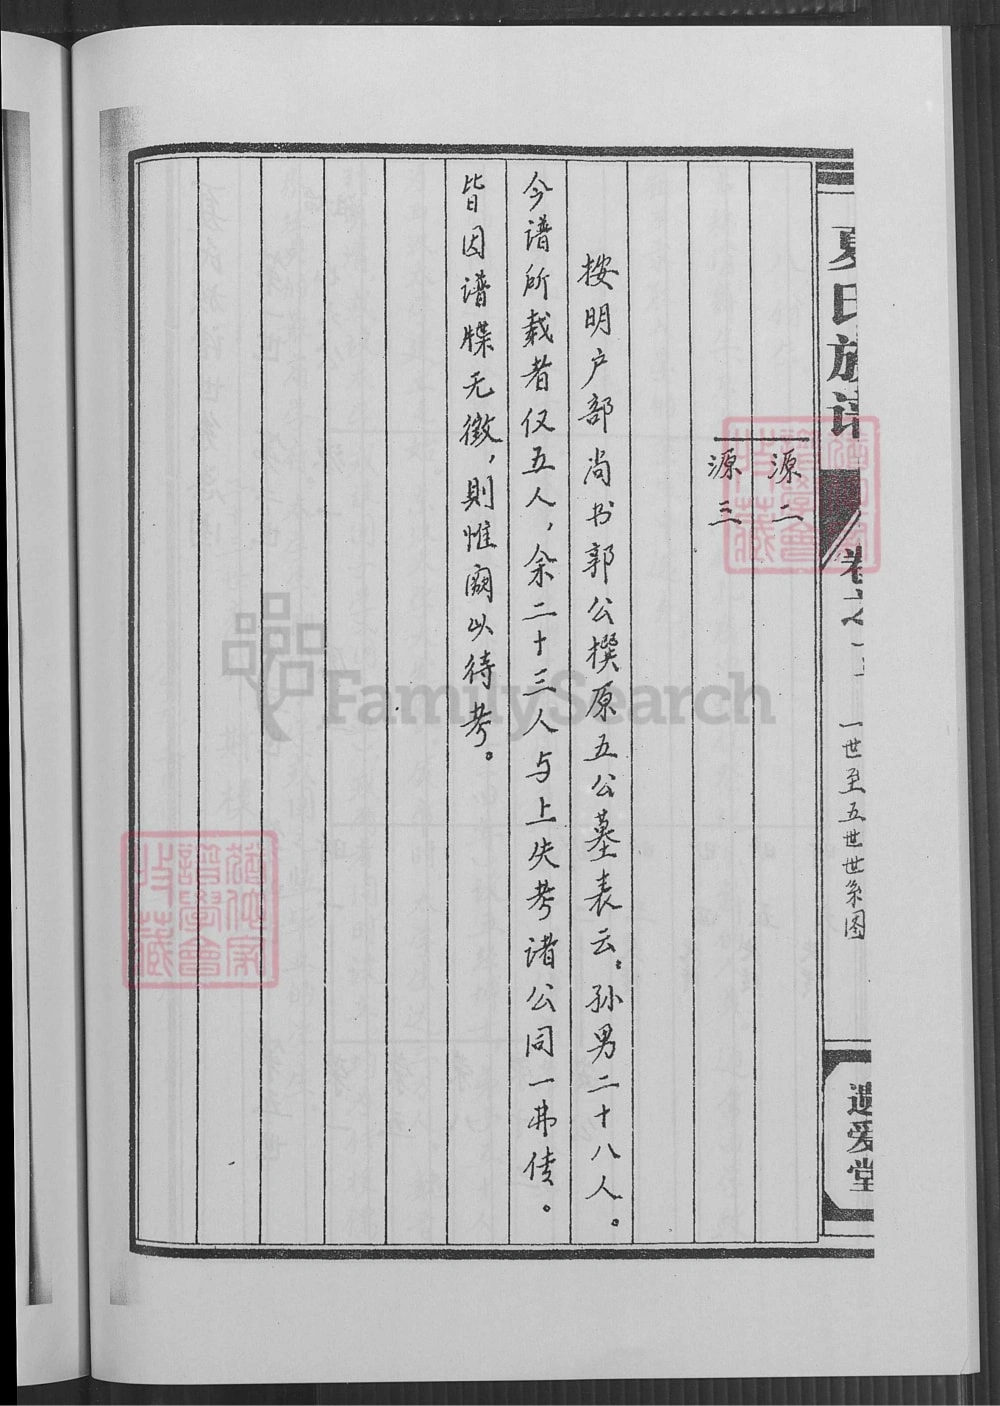 夏氏族谱
卷之
一世至五世世系图
遗爱堂
源二
源三
按明户部尚书郭公撰原五公墓表云：孙男二十八人。
今谱所载者仅五人，余二十三人与上失考诸公同一弗传。
皆因谱牒无徵，則惟阙以待考。
FamilySearch
譜學會
特藏
譜學會
特藏